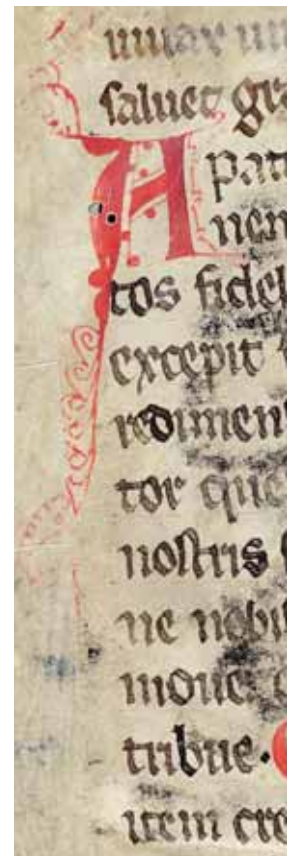 saluet gra
A pat
uen
tos fidel
excepit
redimen
tor que
nostris
ne nobi
moue
tribue.
item cre